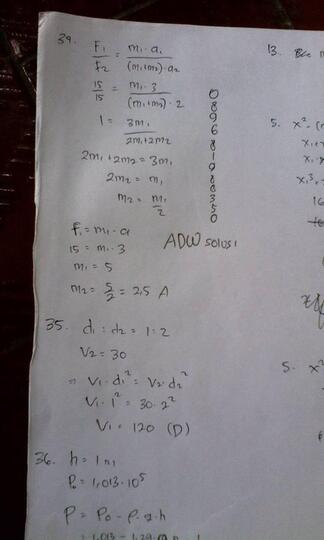 39.
F₁/F₂ = m₁·a₁/(m₁+m₂)·a₂
15/15 = m₁·3/(m₁+m₂)·2
1 = 3m₁/2m₁+2m₂
2m₁+2m₂ = 3m₁
2m₂ = m₁
m₂ = m₁/2
F₁ = m₁·a
15 = m₁·3
m₁ = 5
m₂ = 5/2 = 2,5 A
0
8
9
6
8
1
9
8
8
3
5
0
ADW solusi
35. d₁ : d₂ = 1:2
V₂ = 30
⇒ V₁·d₁² = V₂·d₂²
V₁·1² = 30·2²
V₁ = 120 (D)
36. h = 1 m
P₀ = 1,013·10⁵
P = P₀ - ρ·g·h
13.
5. x²
5. x²